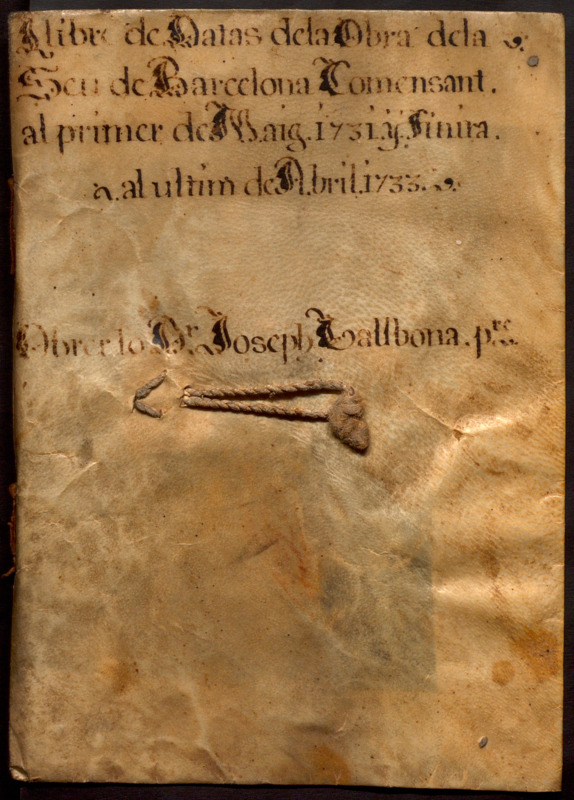 Llibre de Datas dela Obra dela
Seu de Barcelona Comensant.
al primer de Maig. 1731. y finira.
al ultim de Abril. 1733.
Obrer lo Dr. Joseph Vallbona. pre.